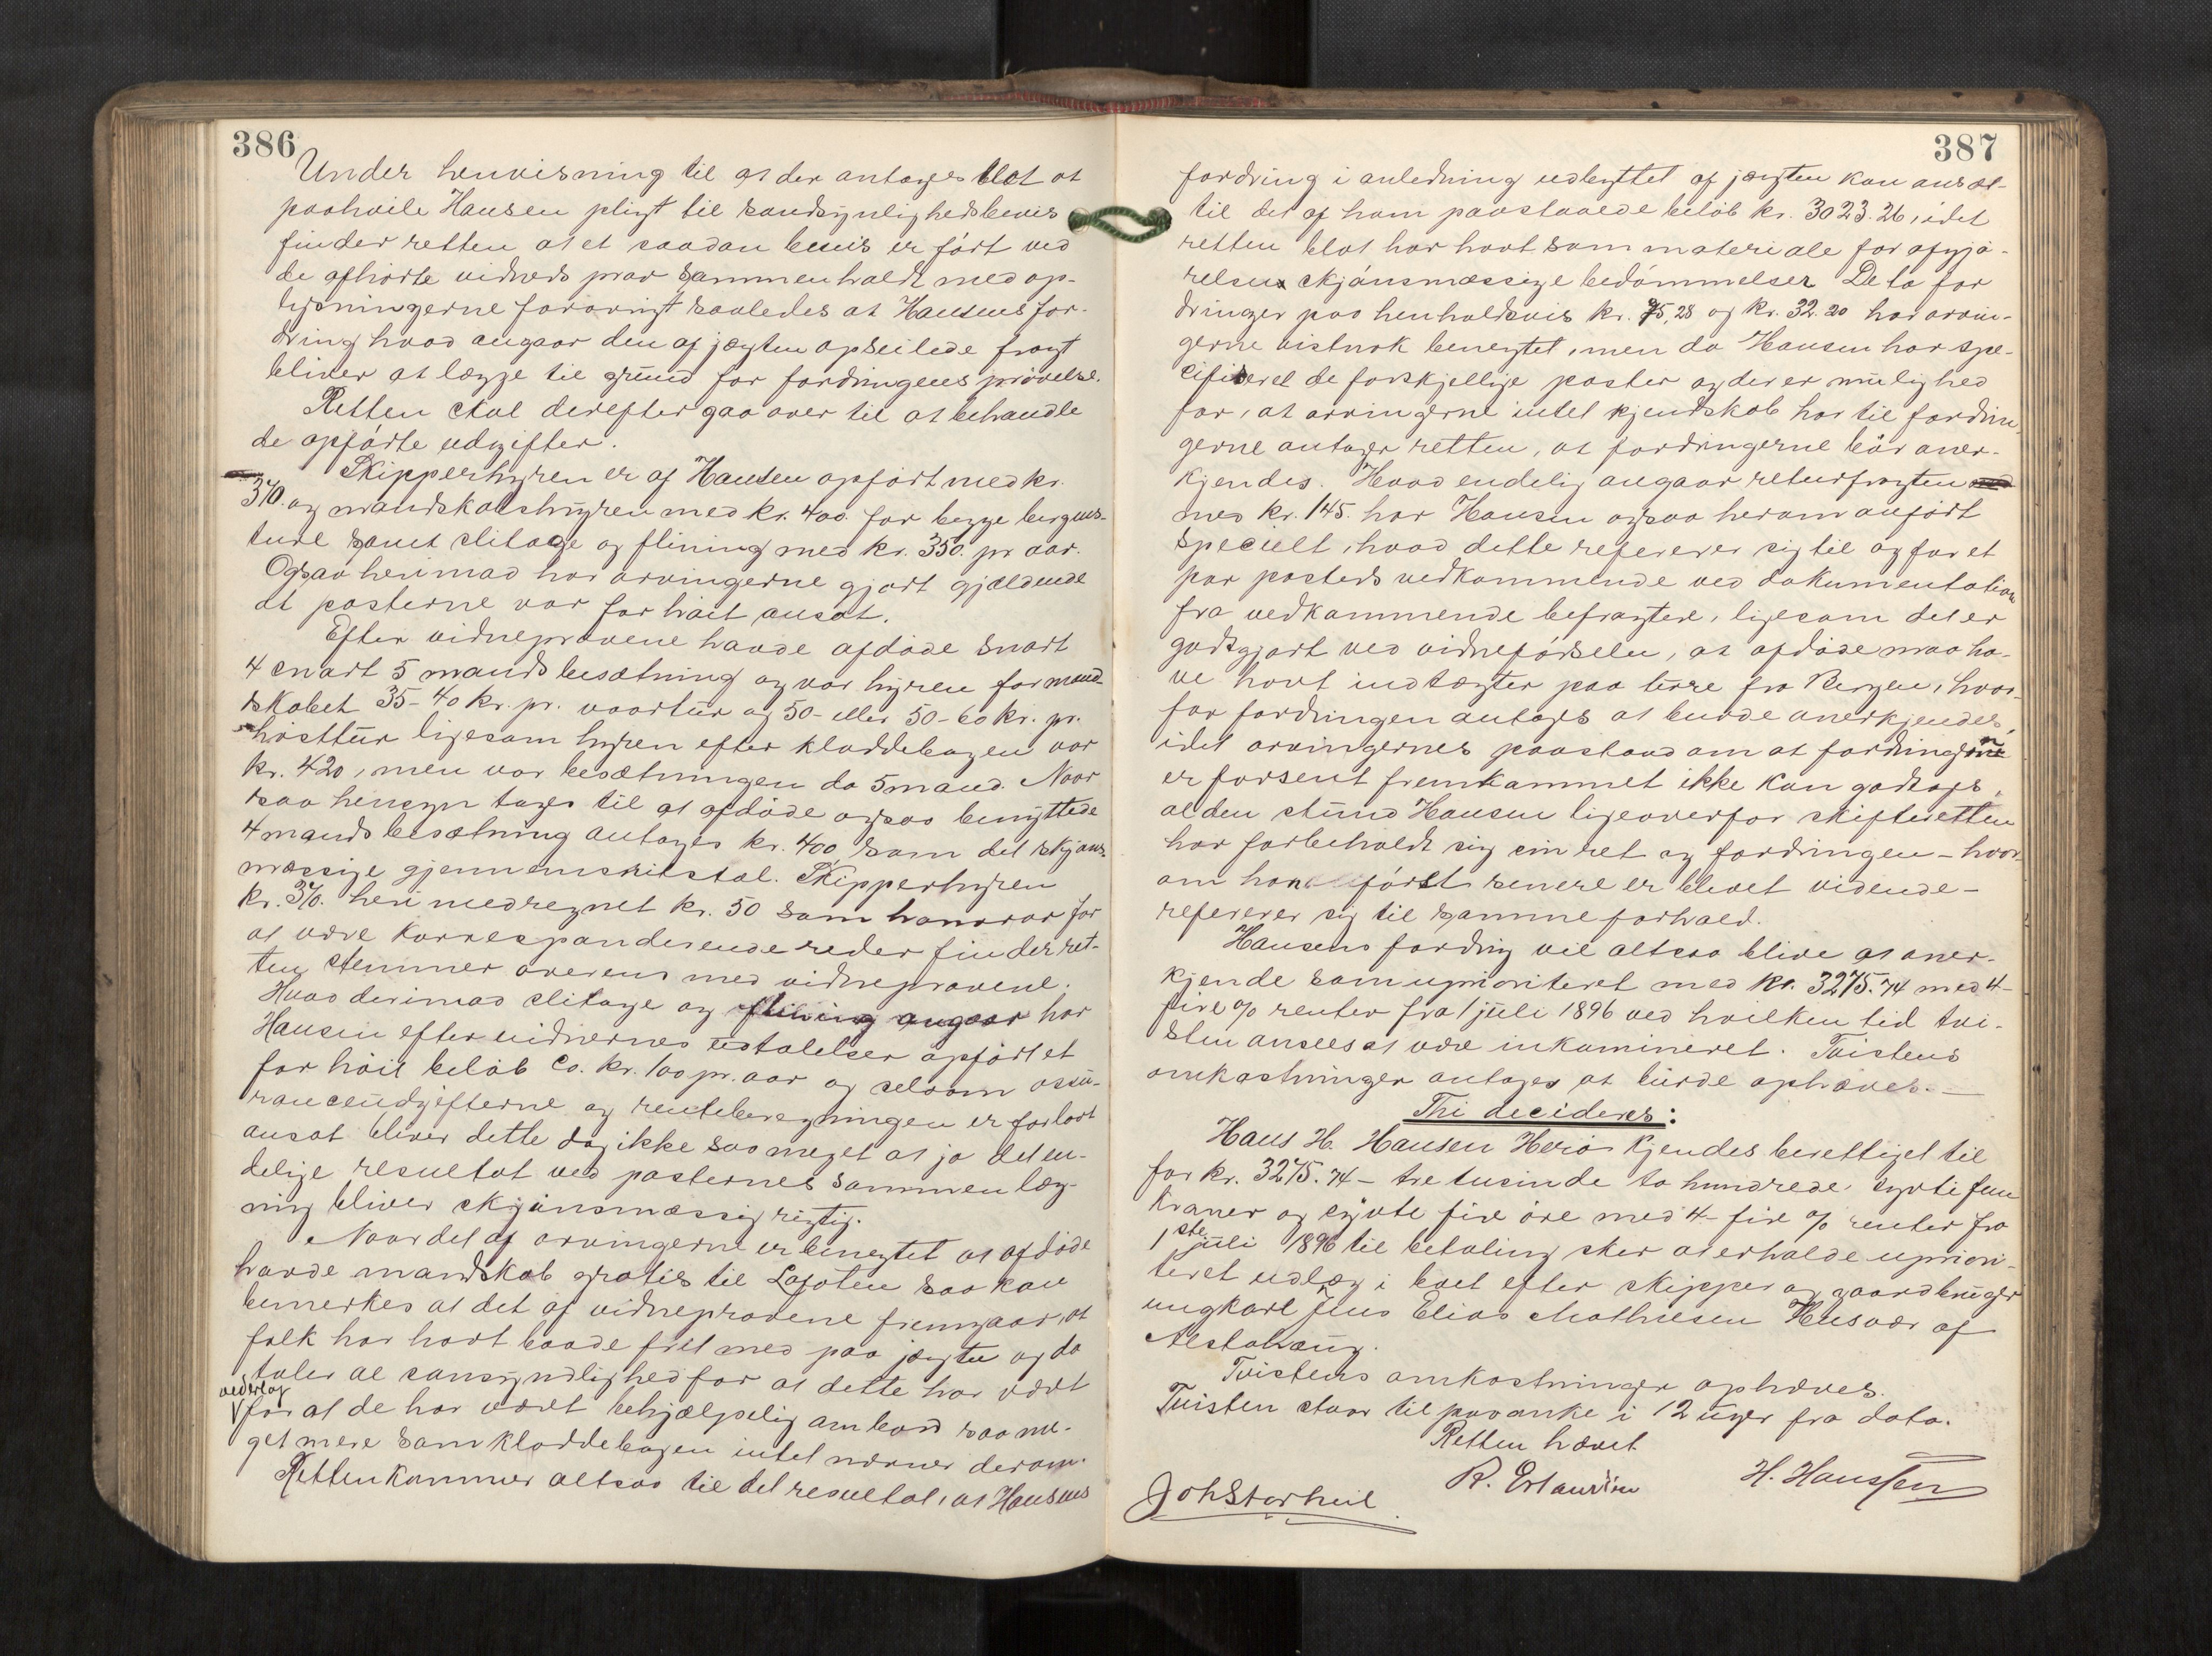 386
Under henvisning til at der antages blot at
paahvile Hansen pligt til sandsynlighedsbevis
finder retten at et saadan bevis er ført ved
de afhørte vidners prov sammenholdt med op-
lysningerne forøvrigt saaledes at Hansens for-
dring hvad angaar den af jægten opseilede fragt
bliver at lægge til grund for fordringens prøvelse.
Retten skal derefter gaa over til at behandle
de opførte udgifter.
Skipperhyren er af Hansen opført med kr.
370. og mandskabshyren med kr. 400. for begge bergens-
ture samt slitage og flining med kr. 350. pr aar.
Ogsaa herimod har arvingerne gjort gjældende
at posterne var for høit ansat.
Efter vidneprovene havde afdøde snart
4 snart 5 mands besætning og var hyren for mand-
skabet 35-40 kr. pr. vaartur og 50- eller 50-60 kr. pr.
høsttur ligesom hyren efter kladdebogen var
kr. 420, men var besætningen da 5 mand. Naar
saa hensyn tages til at afdøde ogsaa benyttede
4 mands besætning antages kr. 400 som det skjøns-
mæssige gjennemsnitstal. Skipperhyren
kr. 370. heri medregnet kr. 50 som honorar for
at være korresponderende reder finder ret-
ten stemmer overens med vidneprovene.
Hvad derimod slitage og flining angaar har
Hansen efter vidnernes udtalelser opført et
for høit beløb ca. kr. 100 pr. aar og selvom assu-
ranceudgifterne og renteberegningen er for lavt
ansat bliver dette dog ikke saa meget at jo det en-
delige resultat ved posternes sammenlæg-
ning bliver skjønsmæssig rigtig.
Naar det af arvingerne er benegtet at afdøde
havde mandskab gratis til Lofoten saa kan
bemerkes at det af vidneprovene fremgaar, at
folk har havt baade fisk med paa jægten og da
taler al sansynlighed for at dette har været
vederlag
for at de har været behjælpelig ombord saa me-
get mere som kladdebogen intet nævner derom.
Retten kommer altsaa til det resultat, at Hansens
387
fordring i anledning udbyttet af jægten kan ansæt-
til det af ham paastaaede beløb kr. 3023.26, idet
retten blot har havt som materiale for afgjø-
relsen skjønsmæssige bedømmelser De to for
dringer paa henholdsvis kr. 75,28 og kr. 32.20 har arvin-
gerne vistnok benegtet, men da Hansen har spe-
cifiseret de forskjellige poster og der er mulighed
for, at arvingerne intet kjendskab har til fordrin-
gerne antager retten, at fordringerne bør aner-
kjendes. Hvad endelig angaar returfragten
med kr. 145. har Hansen ogsaa herom anført
specielt, hvad dette refererer sig til og for et
par posters vedkommende ved dokumentation
fra vedkommende befragtere, ligesom det er
godtgjort ved vidneførselen, at afdøde maa ha-
ve havt indtægter paa turre fra Bergen, hvor-
for fordringen antages at burde anerkjendes,
idet arvingernes paastand om at fordringen
er forsent fremkommet ikke kan godtages,
al den stund Hansen ligeoverfor skifteretten
har forbeholdt sig sin ret og fordringen - hvor-
om han først senere er blevet vidende -
refererer sig til samme forhold.
Hansens fordring vil altsaa blive at aner-
kjende som uprioriteret med kr. 3275.74 med 4-
fire % renter fra 1 juli 1896 ved hvilken tid tvi-
sten ansees at være inkamineret. Tvistens
omkostninger antages at burde ophæves. —
Thi decideres:
Hans H. Hansen Herø kjendes berettiget til
for kr. 3275.74 - tre tusinde to hundrede sytti fem
kroner og sytti fire øre med 4- fire % renter fra
1ste juli 1896 til betaling sker at erholde upriori-
teret udlæg i boet efter skipper og gaardbruger
ungkarl Jens Elias Mathiesen Husvær af
Alstahaug.
Tvistens omkostninger ophæves.
Tvisten staar til paaanke i 12 uger fra dato.
Retten hævet
Joh Storheil R. Erlandsen H. Hanssen